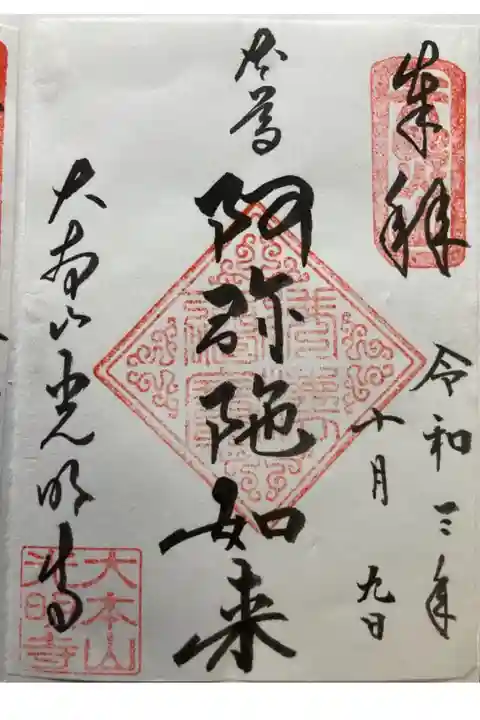 奉拝
令和三年
十月九日
本尊
阿弥陁如来
大本山光明寺
大本山
光明寺